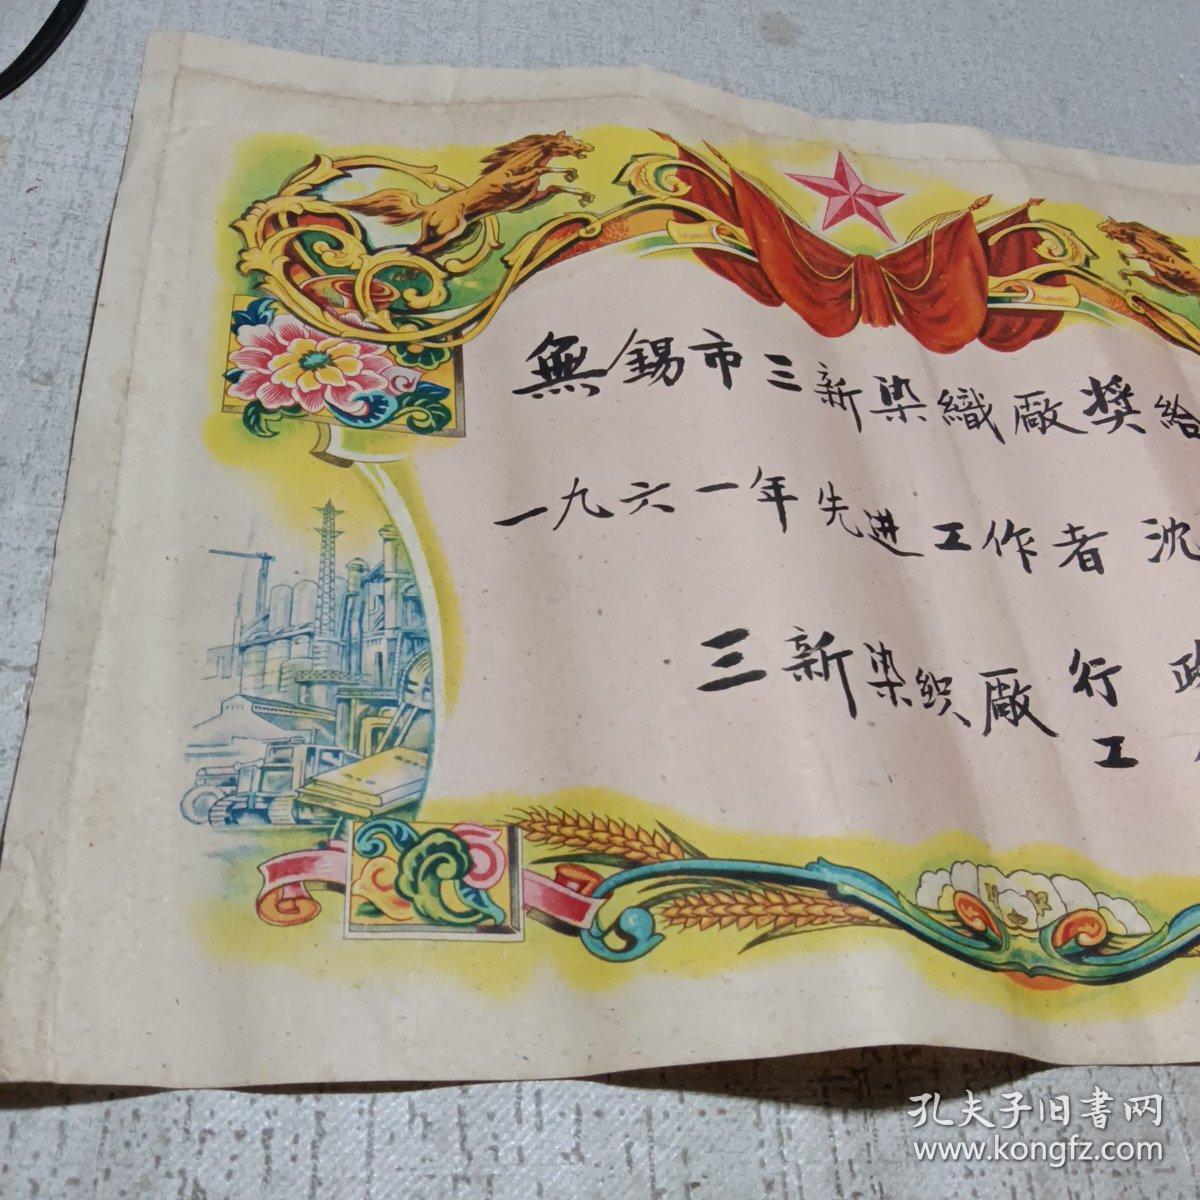 無錫市三新染織廠奬給
一九六一年先进工作者沈
三新染织廠行政
工
孔夫子旧書网
www.kongfz.com